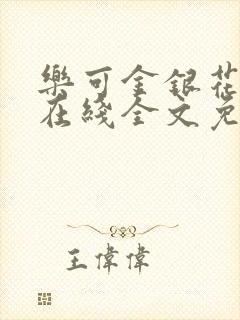 樂可金銀花
在綫全文免
王偉偉